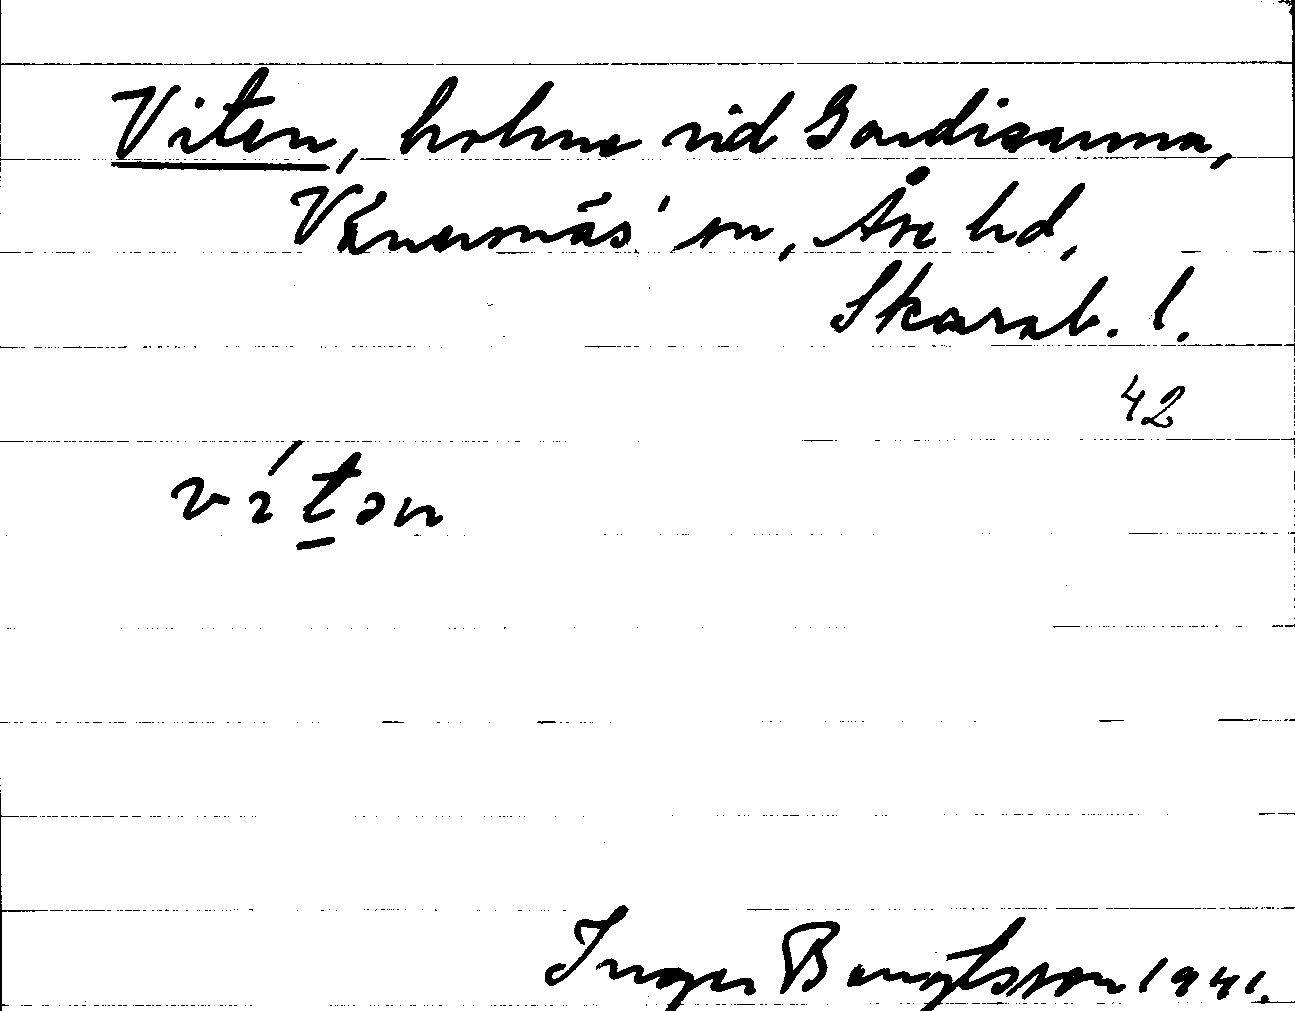 Viten, holme vid Gardisanna,
Vänersnäs' sn, Åse hd,
Skarab. l.
42
vítən
Inger Bengtsson 1941.